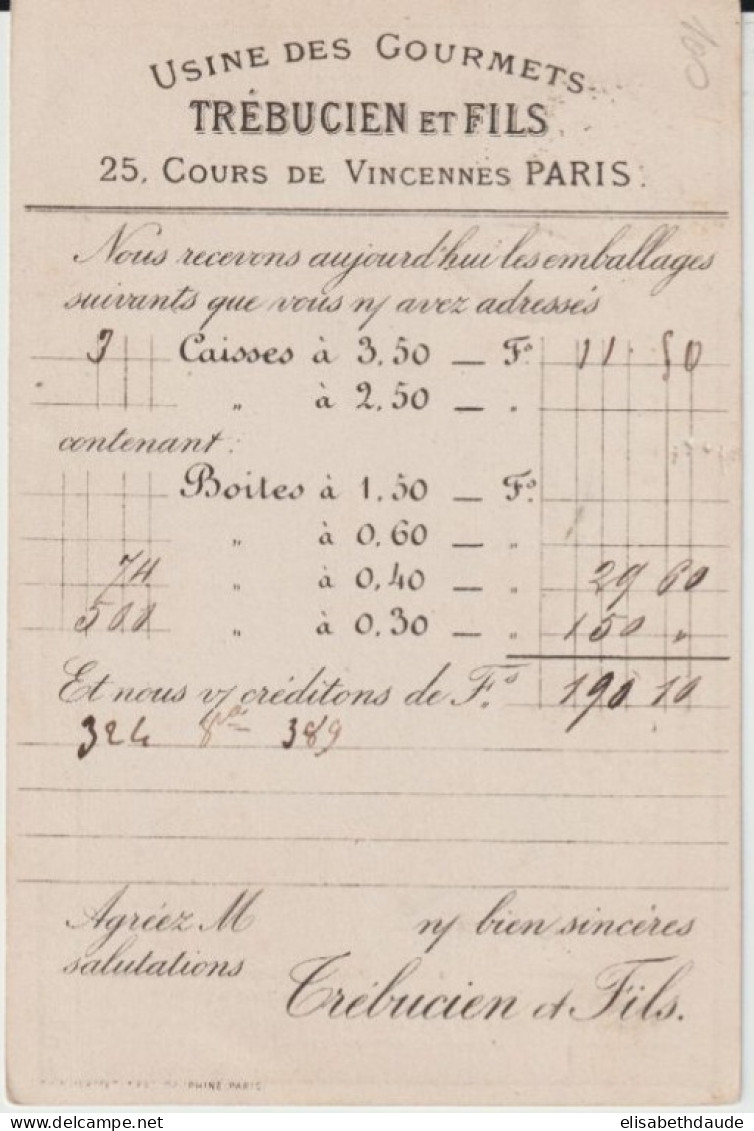 100
USINE DES GOURMETS
TRÉBUCIEN ET FILS
25, COURS DE VINCENNES PARIS.
Nous recevons aujourd'hui les emballages
suivants que vous n/ avez adressés
3 Caisses à 3.50 — Fs. 11 50
" à 2.50 — "
contenant:
Boites à 1.50 — Fs.
" à 0.60 — "
74 " à 0.40 — " 29 60
500 " à 0.30 — " 150 "
Et nous v/ créditons de Fs. 190 10
324 389
Agréez M n/ bien sincères
salutations
Trébucien et Fils.
PARIS
elisabethdaude